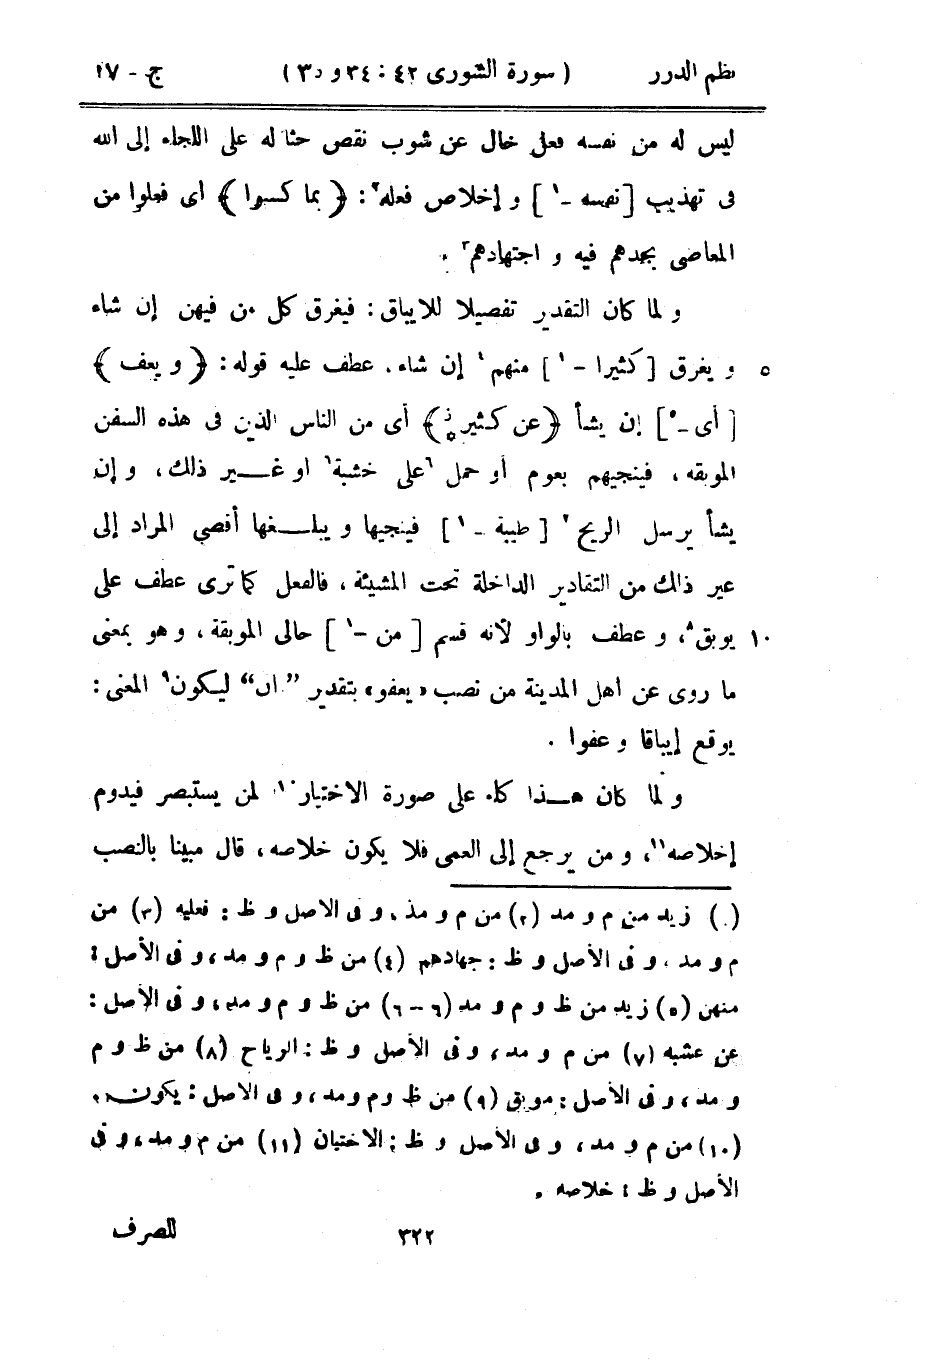 نظم الدرر ( سورة الشورى ٤٢ : ٣٤ و ٣٥ ) ج - ١٧
ليس له من نفسه فعل خال عن شوب نقص حثا له على اللجاء إلى الله
فى تهذيب [ نفسه -١ ] و إخلاص فعله٢ : ﴿ بما كسبوا ﴾ أى فعلوا من
المعاصى بجدهم فيه و اجتهادهم٣ .
و لما كان التقدير تفصيلا للايباق : فيغرق كل من فيهن إن شاء
٥ و يغرق [ كثيرا -١ ] منهم٤ إن شاء ، عطف عليه قوله : ﴿ و يعف ﴾
[ أى -٥ ] إن يشأ ﴿ عن كثير ﴾ أى من الناس الذين فى هذه السفن
الموبقه ، فينجيهم بعوم أو حمل ٦على خشبة٦ او غير ذلك ، و إن
يشأ يرسل الريح٧ [ طيبة -١ ] فينجيها و يبلغها أقصي المراد إلى
غير ذلك من التقادير الداخلة تحت المشيئة ، فالفعل كما ترى عطف على
١٠ يوبق٨ ، و عطف بالواو لأنه قسم [ من -١ ] حالى الموبقة ، و هو بمعنى
ما روى عن أهل المدينة من نصب « يعفو » بتقدير ” ان “ ليكون٩ المعنى :
يوقع إيباقا و عفوا .
و لما كان هذا كله على صورة الاختبار١٠ لمن يستبصر فيدوم
إخلاصه١١ ، و من يرجع إلى العمى فلا يكون خلاصه ، قال مبينا بالنصب
(١) زيد من م و مد (٢) من م و مذ ، و فى الاصل و ظ : فعليه (٣) من
م و مد ، و فى الأصل و ظ : جهادهم (٤) من ظ و م و مد ، و فى الأصل :
منهن (٥) زيد من ظ و م و مد (٦ - ٦) من ظ و م و مد ، و فى الأصل :
عن عشبه (٧) من م و مد ، و فى الأصل و ظ : الرياح (٨) من ظ و م
و مد ، و فى الأصل : موبق (٩) من ظ و م و مد ، و فى الاصل : يكون .
(١٠) من م و مد ، و فى الأصل و ظ : الاختبان (١١) من م و مد ، و فى
الأصل و ظ : خلاصه .
٣٢٢ للصرف